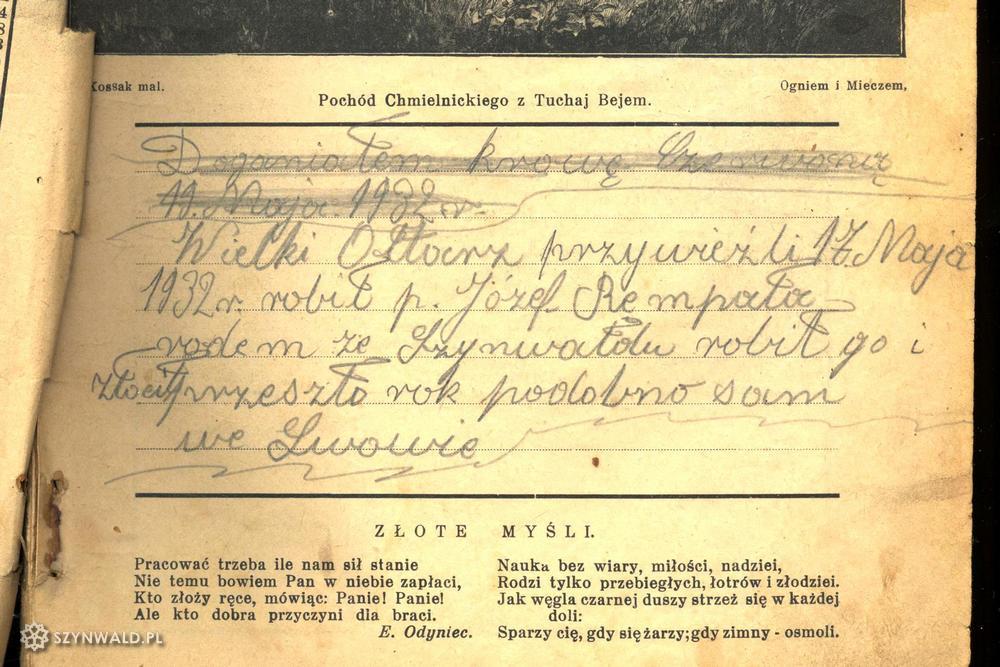 4
8
Kossak mal.
Ogniem i Mieczem,
Pochód Chmielnickiego z Tuchaj Bejem.
Doganiałem krowę Czerwoną
11. Maja 1932 r.
Wielki Ołtarz przywieźli 17. Maja
1932 r. robił p. Józef Rempała
rodem ze Szynwałdu robił go i
złocił przeszło rok podobno sam
we Lwowie
ZŁOTE MYŚLI.
Pracować trzeba ile nam sił stanie
Nie temu bowiem Pan w niebie zapłaci,
Kto złoży ręce, mówiąc: Panie! Panie!
Ale kto dobra przyczyni dla braci.
E. Odyniec.
Nauka bez wiary, miłości, nadziei,
Rodzi tylko przebiegłych, łotrów i złodziei.
Jak węgla czarnej duszy strzeż się w każdej
doli:
Sparzy cię, gdy się żarzy; gdy zimny - osmoli.
SZYNWALD.PL